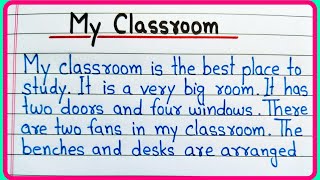 My Classroom
My classroom is the best place to
study. It is a very big room. It has
two doors and four windows. There
are two fans in my classroom. The
benches and desks are arranged